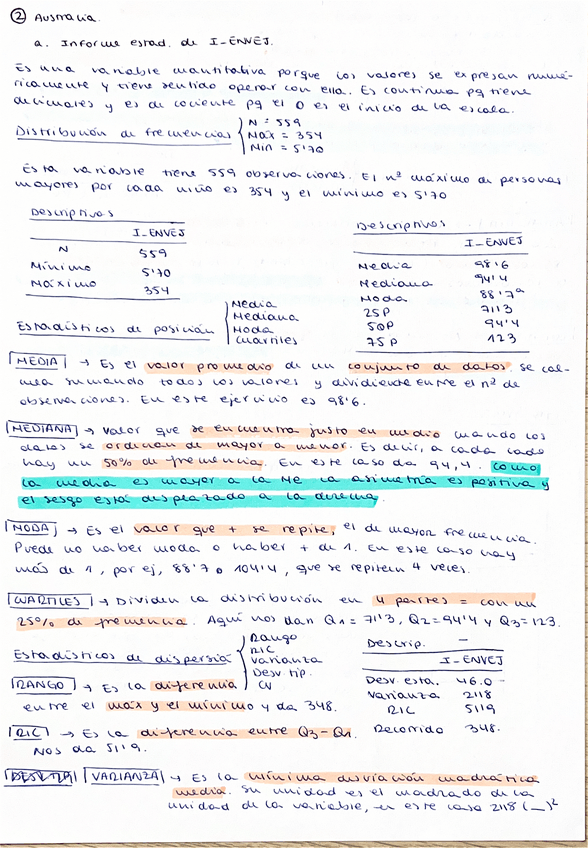 ② Australia.
a. Informe estad. de I-ENVEJ.
Es una variable cuantitativa porque los valores se expresan numé-
ricamente y tiene sentido operar con ella. Es continua pq tiene
decimales y es de cociente pq el 0 es el inicio de la escala.
Distribución de frecuencias
N = 559
Máx = 354
Min = 5'70
Esta variable tiene 559 observaciones. El nº máximo de personas
mayores por cada niño es 354 y el mínimo es 5'70
Descriptivos
I-ENVEJ
N 559
Mínimo 5'70
Máximo 354
Descriptivos
I-ENVEJ
Media 98'6
Mediana 94'4
Moda 88'7ª
25P 71'3
50P 94'4
75P 123
Estadísticos de posición
Media
Mediana
Moda
Cuartiles
MEDIA → Es el valor promedio de un conjunto de datos. Se cal-
cula sumando todos los valores y dividiendo entre el nº de
observaciones. En este ejercicio es 98'6.
MEDIANA → Valor que se encuentra justo en medio cuando los
datos se ordenan de mayor a menor. Es decir, a cada lado
hay un 50% de frecuencia. En este caso da 94,4. Como
la media es mayor a la Me la asimetría es positiva y
el sesgo está desplazado a la derecha.
MODA → Es el valor que + se repite, el de mayor frecuencia.
Puede no haber moda o haber + de 1. En este caso hay
más de 1, por ej, 88'7 o 104'4, que se repiten 4 veces.
CUARTILES → Dividen la distribución en 4 partes = con un
25% de frecuencia. Aquí nos dan Q1 = 71'3, Q2 = 94'4 y Q3 = 123.
Estadísticos de dispersió
Rango
RIC
Varianza
Desv. tip.
CV
Descrip. -
I-ENVEJ
Desv. esta. 46.0
Varianza 2118
RIC 51'9
Recorrido 348.
RANGO → Es la diferencia
entre el máx y el mínimo y da 348.
RIC → Es la diferencia entre Q3-Q1.
Nos da 51'9.
VARIANZA → Es la mínima desviación cuadrática
media. Su unidad es el cuadrado de la
unidad de la variable, en este caso 2118 (_)²